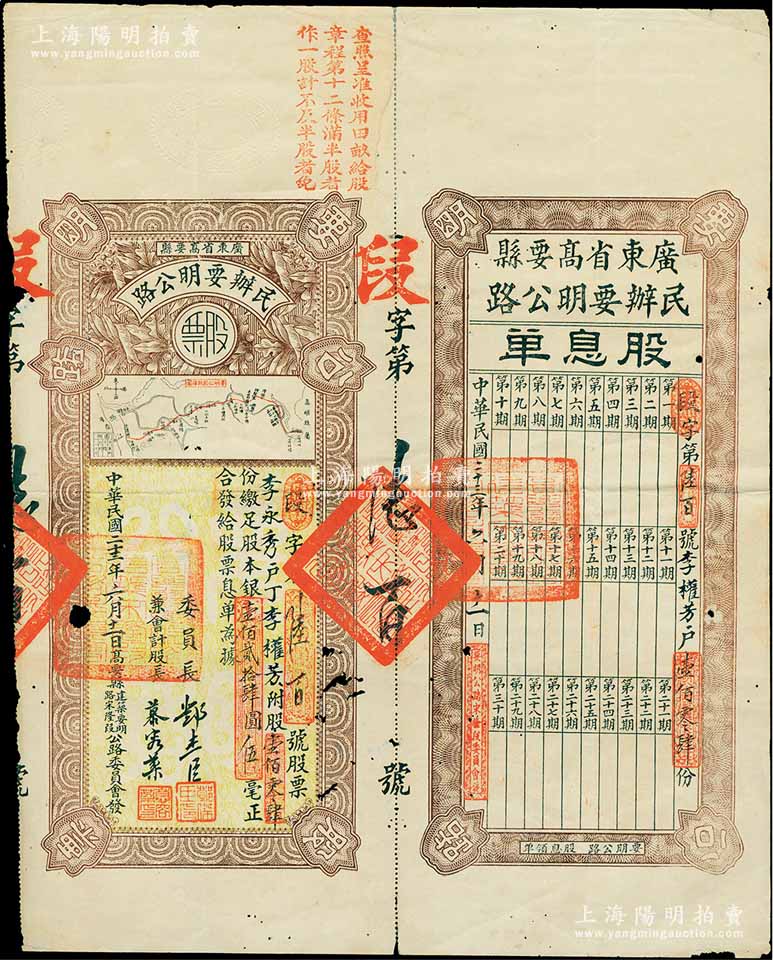 上海陽明拍賣
www.yangmingauction.com
上海陽明拍賣
www.yangmingauction.com
查照呈准收用田畝給股
章程第十二條滿半股者
作一股計不及半股者免
廣東省高要縣
民辦要明公路
股票
段字第陸百號股票
李永秀戶丁李權芳附股壹佰零肆
份繳足股本銀壹佰貳拾肆圓伍毫正
合發給股票息單為據
委員長
兼會計股長
中華民國二十三年六月十二日高要縣建築要明路宋隆段公路委員會發
段
字第
陸百
號
廣東省高要縣
民辦要明公路
股息單
段字第陸百號李權芳戶壹佰零肆份
第一期
第二期
第三期
第四期
第五期
第六期
第七期
第八期
第九期
第十期
第十一期
第十二期
第十三期
第十四期
第十五期
第十七期
第十八期
第十九期
第二十期
第二十一期
第二十二期
第二十三期
第二十四期
第二十五期
第二十六期
第二十七期
第二十八期
第二十九期
第三十期
中華民國二十三年六月十二日
要明公路 股息領單
上海陽明拍賣
www.yangmingauction.com
上海陽明拍賣
www.yangmingauction.com